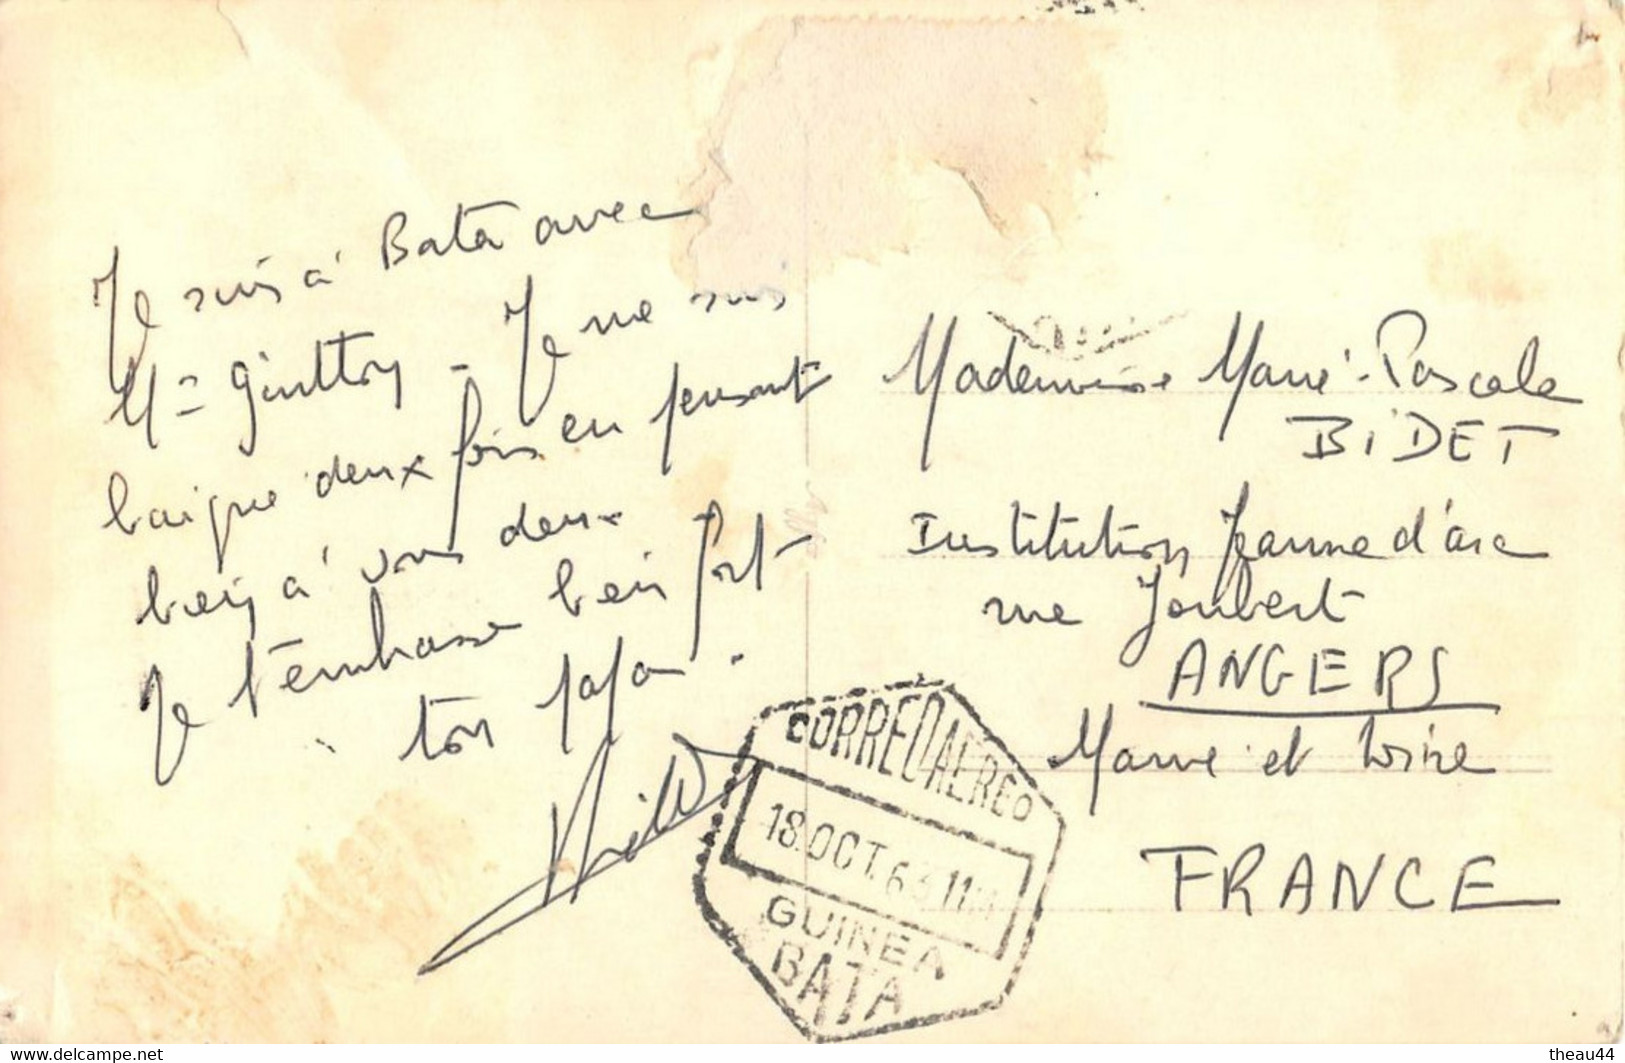 Je suis à Bata avec
Mr - Je me suis
baigné deux fois en pensant
bien à vous deux
Je t'embrasse bien fort
ton papa.
Mademoiselle Marie-Pascale
BIDET
Institution Jeanne d'arc
rue Joubert
ANGERS
Maine et Loire
FRANCE
CORREO AEREO
18.OCT.63.11M
GUINEA
BATA
www.delcampe.net
theau44